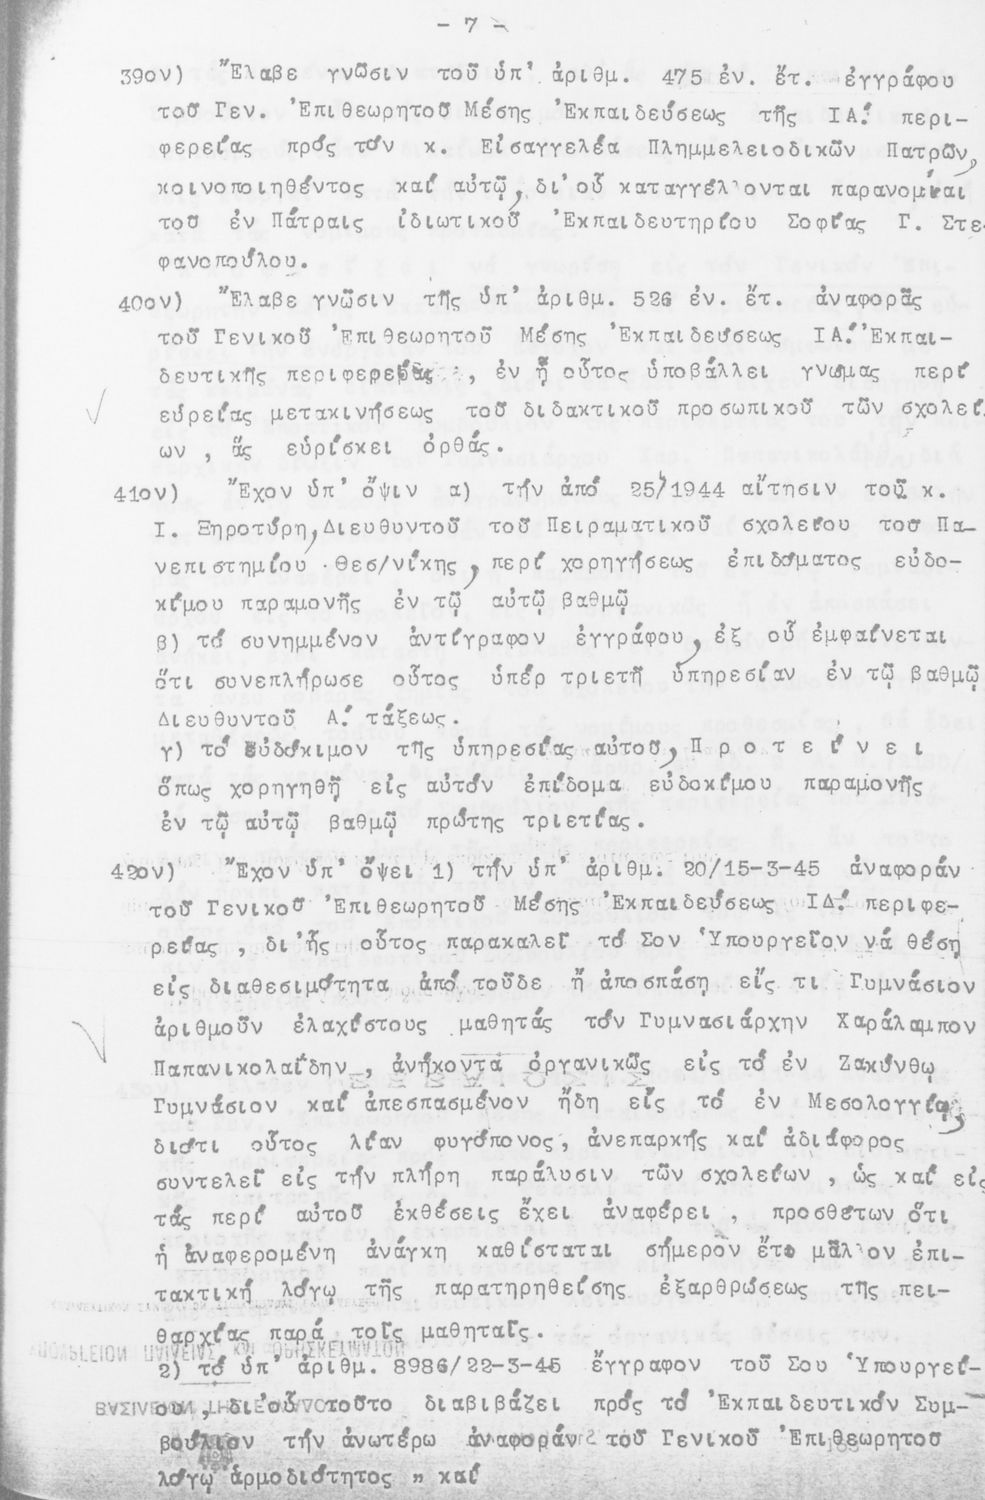 - 7 -
39ον) Ἔλαβε γνῶσιν τοῦ ὑπ' ἀριθμ. 475 ἐν. ἔτ. ἐγγράφου
τοῦ Γεν. Ἐπιθεωρητοῦ Μέσης Ἐκπαιδεύσεως τῆς ΙΑ΄ περι-
φερείας πρός τόν κ. Εἰσαγγελέα Πλημμελειοδικῶν Πατρῶν,
κοινοποιηθέντος καί αὐτῷ, δι'οὗ καταγγέλλονται παρανομίαι
τοῦ ἐν Πάτραις ἰδιωτικοῦ Ἐκπαιδευτηρίου Σοφίας Γ. Στε-
φανοπούλου.
40ον) Ἔλαβε γνῶσιν τῆς ὑπ' ἀριθμ. 526 ἐν. ἔτ. ἀναφορᾶς
τοῦ Γενικοῦ Ἐπιθεωρητοῦ Μέσης Ἐκπαιδεύσεως ΙΑ΄ Ἐκπαι-
δευτικῆς περιφερείας , ἐν ᾗ οὗτος ὑποβάλλει γνώμας περί
εὐρείας μετακινήσεως τοῦ διδακτικοῦ προσωπικοῦ τῶν σχολεί
ων , ἅς εὑρίσκει ὀρθάς.
41ον) Ἔχον ὑπ' ὄψιν α) τήν ἀπό 25/1944 αἴτησιν τοῦ κ.
Ι. Ξηροτύρη, Διευθυντοῦ τοῦ Πειραματικοῦ σχολείου τοῦ Πα-
νεπιστημίου Θεσ/νίκης, περί χορηγήσεως ἐπιδόματος εὐδο-
κίμου παραμονῆς ἐν τῷ αὐτῷ βαθμῷ
β) τό συνημμένον ἀντίγραφον ἐγγράφου, ἐξ οὗ ἐμφαίνεται
ὅτι συνεπλήρωσε οὗτος ὑπέρ τριετῆ ὑπηρεσίαν ἐν τῷ βαθμῷ
Διευθυντοῦ Α΄ τάξεως.
γ) τό εὐδόκιμον τῆς ὑπηρεσίας αὐτοῦ, Π ρ ο τ ε ί ν ε ι
ὅπως χορηγηθῇ εἰς αὐτόν ἐπίδομα εὐδοκίμου παραμονῆς
ἐν τῷ αὐτῷ βαθμῷ πρώτης τριετίας.
42ον) Ἔχον ὑπ' ὄψει 1) τήν ὑπ' ἀριθμ. 20/15-3-45 ἀναφοράν
τοῦ Γενικοῦ Ἐπιθεωρητοῦ Μέσης Ἐκπαιδεύσεως ΙΔ΄ περιφε-
ρείας , δι'ἧς οὗτος παρακαλεῖ τό Σον Ὑπουργεῖον νά θέσῃ
εἰς διαθεσιμότητα ἀπό τοῦδε ἤ ἀποσπάσῃ εἴς τι Γυμνάσιον
ἀριθμοῦν ἐλαχίστους μαθητάς τόν Γυμνασιάρχην Χαράλαμπον
Παπανικολαΐδην , ἀνήκοντα ὀργανικῶς εἰς τό ἐν Ζακύνθῳ
Γυμνάσιον καί ἀπεσπασμένον ἤδη εἰς τό ἐν Μεσολογγίῳ,
διότι οὗτος λίαν φυγόπονος, ἀνεπαρκής καί ἀδιάφορος
συντελεῖ εἰς τήν πλήρη παράλυσιν τῶν σχολείων , ὡς καί εἰς
τάς περί αὐτοῦ ἐκθέσεις ἔχει ἀναφέρει , προσθέτων ὅτι
ἡ ἀναφερομένη ἀνάγκη καθίσταται σήμερον ἔτι μᾶλλον ἐπι-
τακτική λόγῳ τῆς παρατηρηθείσης ἐξαρθρώσεως τῆς πει-
θαρχίας παρά τοῖς μαθηταῖς.
2) τό ὑπ' ἀριθμ. 8986/22-3-45 ἔγγραφον τοῦ Σου Ὑπουργεί-
ου , δι'οὗ τοῦτο διαβιβάζει πρός τό Ἐκπαιδευτικόν Συμ-
βούλιον τήν ἀνωτέρω ἀναφοράν τοῦ Γενικοῦ Ἐπιθεωρητοῦ
λόγῳ ἁρμοδιότητος " καί